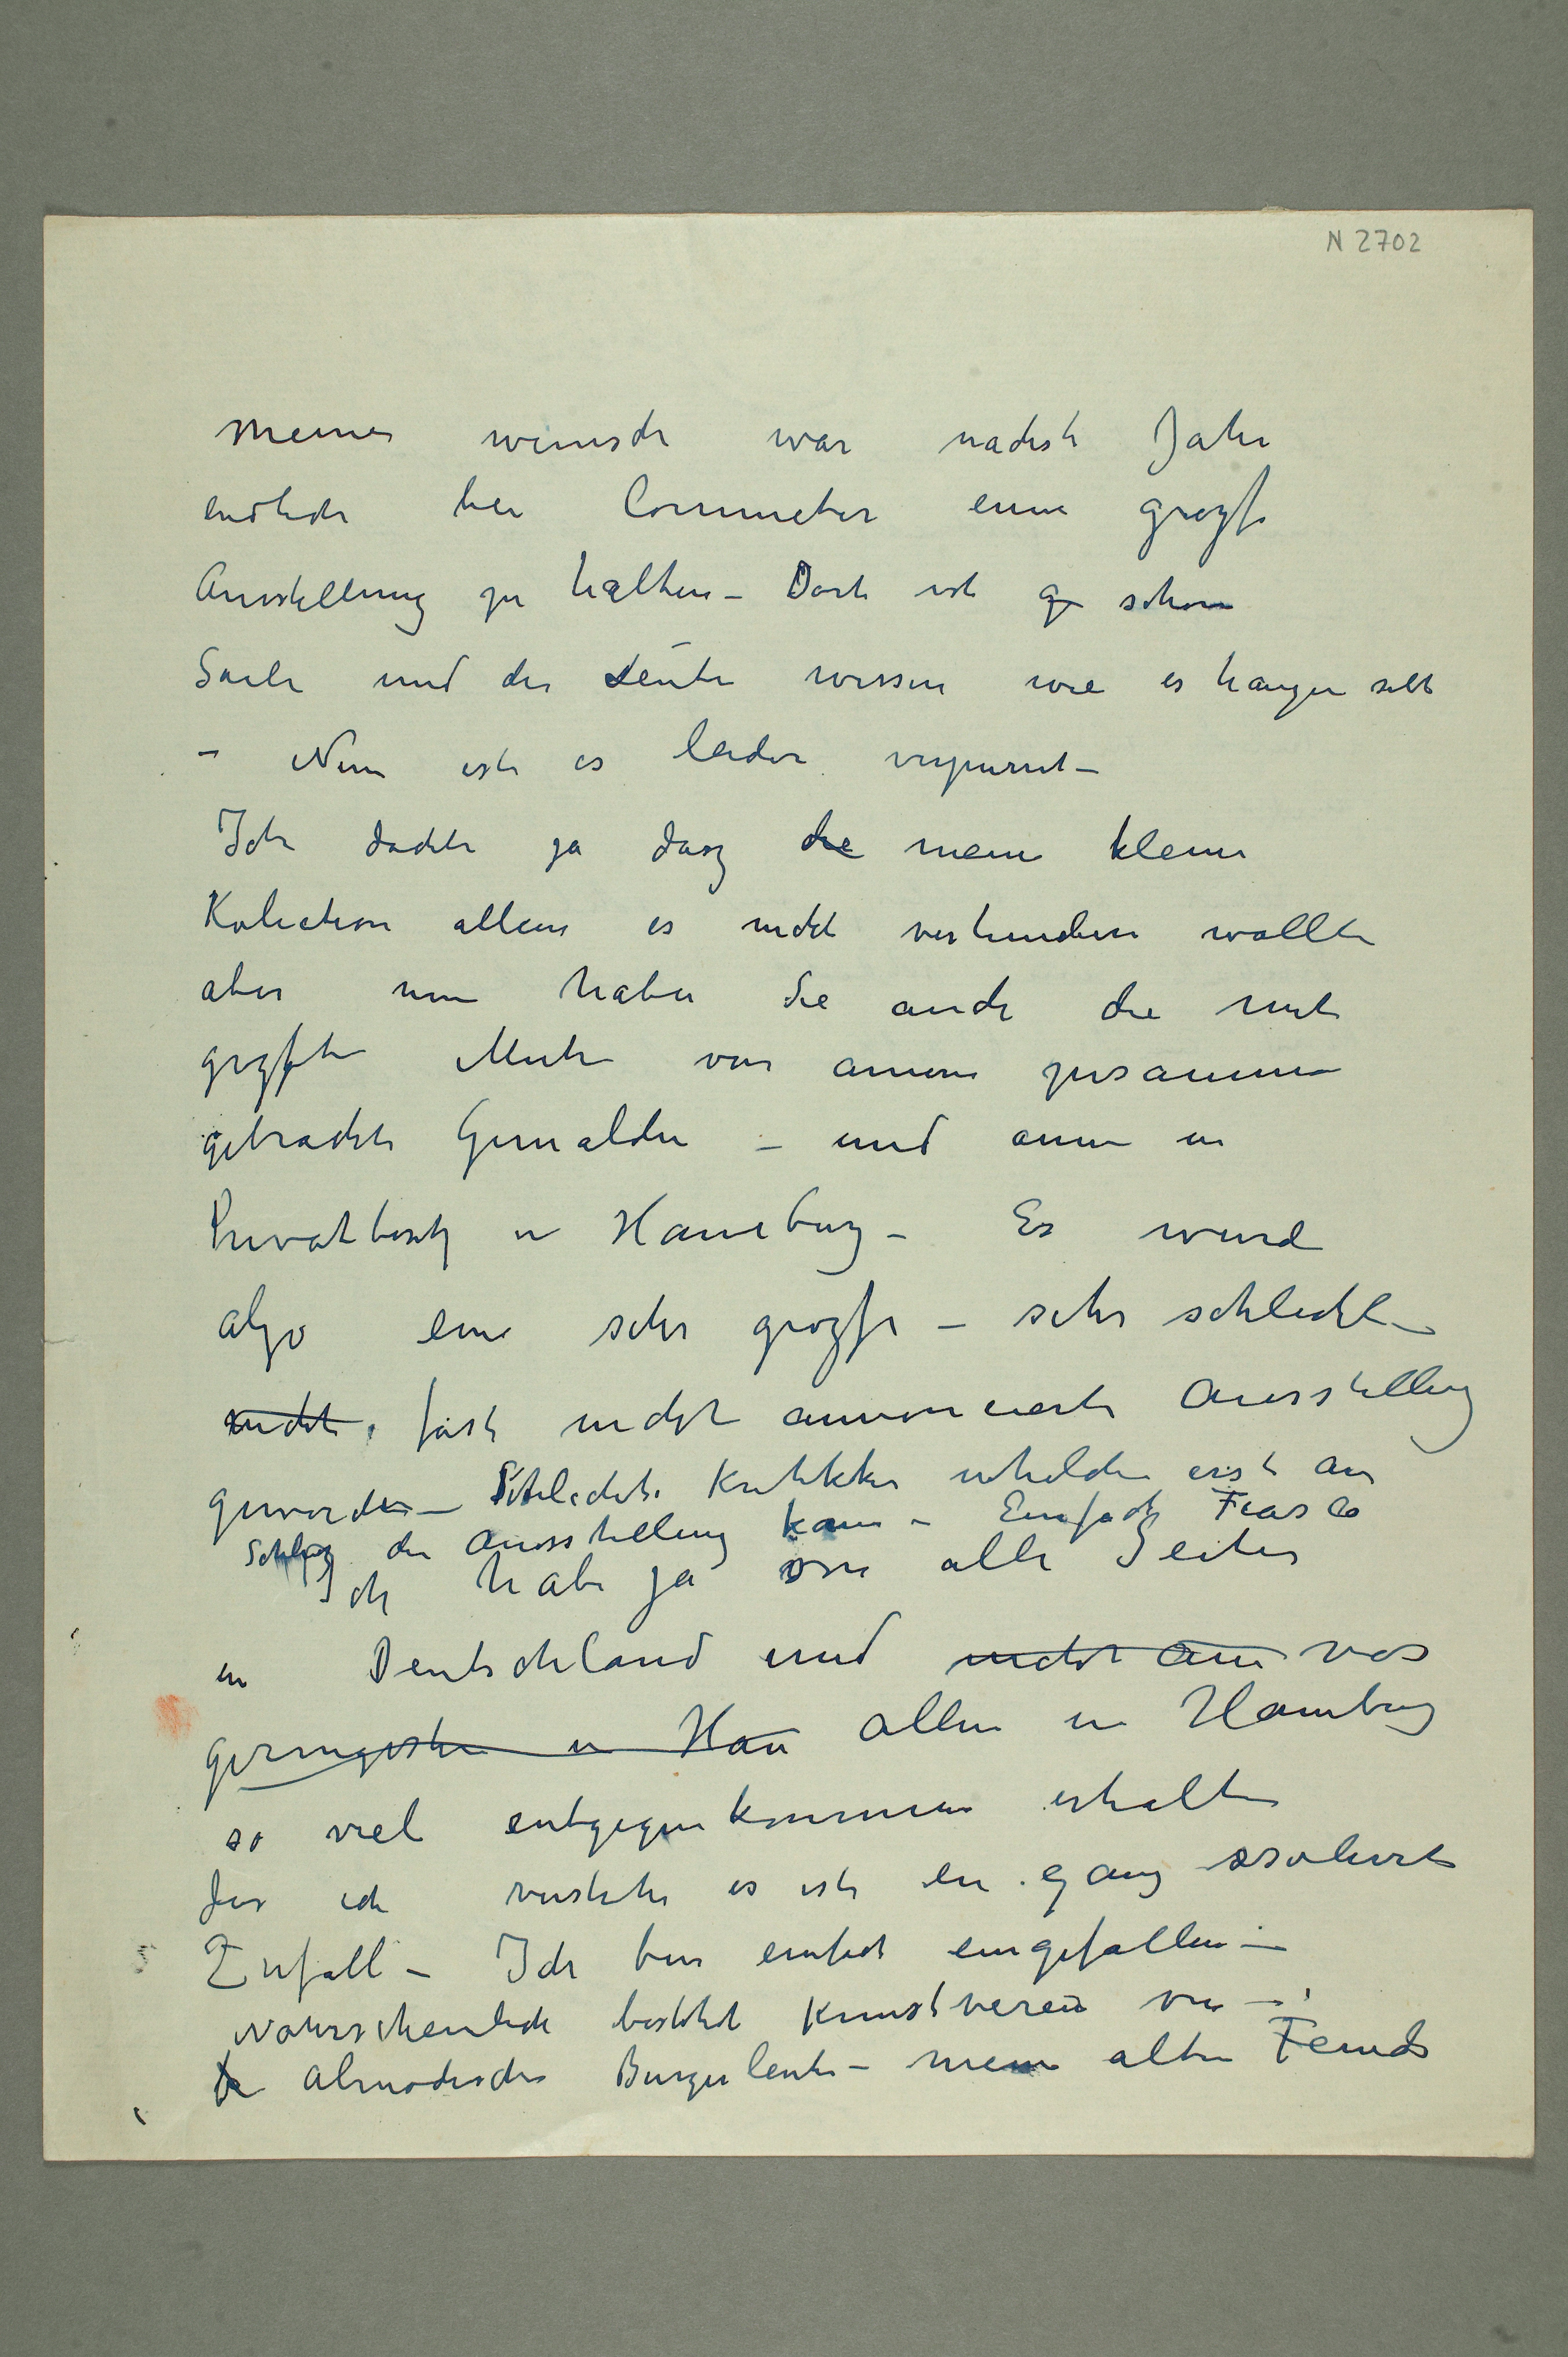 N 2702
Meiner wunsch war nächste Jahr
endlich bei Commeter eine grozse
Ausstellung zu halten – Dort ist schöne
Säale und die Leute wissen wie es hängen sollt
– Nun ist es leider
Ich dachte ja dasz die meine kleine
Kolection allein es nicht verhindern wollte
aber nun haben Sie auch die mit
grozster Mühe von zusammen
gebrachte Gemälden – und in
Privatbesitz in Hamburg – Es wurd
algo eine sehr grozse – sehr schlecht
nicht, fast nicht annoncierte Ausstellung
geworden – Schlechte Kritikker erst am
Schlusz der Ausstellung – Einfach Fiasco
Ich habe ja von alle Seiten
in Deutschland und nicht am vor
geringsten in Ham allem in Hamburg
so viel entgegenkommen erhalten
ich verstehe es ist ein ganz isolirte
Zufall – Ich bin einfach eingefallen –
Wahrscheinlich besteht Kunstverein von –
altmodische Burgerleute – meine alte Feinde